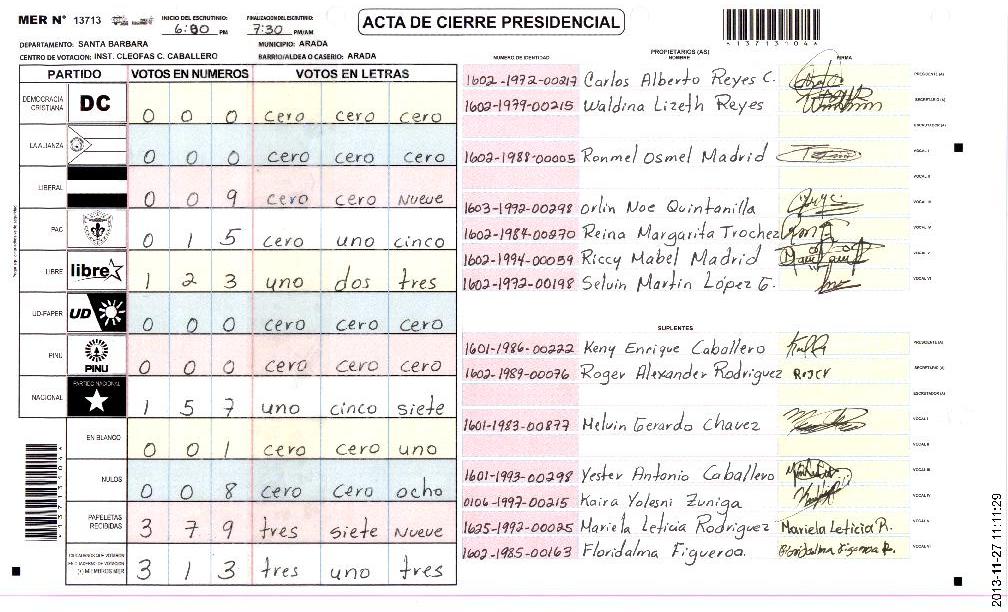 MER N° 13713 INICIO DEL ESCRUTINIO: 6:00 PM FINALIZACION DEL ESCRUTINIO: 7:30 PM/AM ACTA DE CIERRE PRESIDENCIAL
DEPARTAMENTO: SANTA BARBARA MUNICIPIO: ARADA
CENTRO DE VOTACION: INST. CLEOFAS C. CABALLERO BARRIO/ALDEA O CASERIO: ARADA
PARTIDO VOTOS EN NUMEROS VOTOS EN LETRAS
DEMOCRACIA CRISTIANA DC 0 0 0 cero cero cero
LA ALIANZA 0 0 0 cero cero cero
LIBERAL 0 0 9 cero cero Nueve
PAC 0 1 5 cero uno cinco
LIBRE libre 1 2 3 uno dos tres
UD-FAPER UD 0 0 0 cero cero cero
PINU PINU 0 0 0 cero cero cero
NACIONAL PARTIDO NACIONAL 1 5 7 uno cinco siete
EN BLANCO 0 0 1 cero cero uno
NULOS 0 0 8 cero cero ocho
PAPELETAS RECIBIDAS 3 7 9 tres siete Nueve
CIUDADANOS QUE VOTARON EN CUADERNO DE VOTACION (+) MIEMBROS MER 3 1 3 tres uno tres
PROPIETARIOS (AS)
NUMERO DE IDENTIDAD NOMBRE FIRMA
1602-1972-00217 Carlos Alberto Reyes C. PRESIDENTE (A)
1602-1979-00215 Waldina Lizeth Reyes SECRETARIO (A)
ESCRUTADOR (A)
1602-1988-00005 Ronmel Osmel Madrid VOCAL I
VOCAL II
1603-1992-00298 Orlin Noe Quintanilla VOCAL III
1602-1984-00270 Reina Margarita Trochez VOCAL IV
1602-1994-00059 Riccy Mabel Madrid VOCAL V
1602-1972-00198 Selvin Martin López G. VOCAL VI
SUPLENTES
1601-1986-00222 Keny Enrique Caballero PRESIDENTE (A)
1602-1989-00076 Roger Alexander Rodriguez Roger SECRETARIO (A)
ESCRUTADOR (A)
1601-1983-00877 Melvin Gerardo Chavez VOCAL I
VOCAL II
1601-1993-00298 Yester Antonio Caballero VOCAL III
0106-1997-00215 Kaira Yolesni Zuniga VOCAL IV
1625-1992-00025 Mariela Leticia Rodriguez Mariela Leticia R. VOCAL V
1602-1985-00163 Floridalma Figueroa. VOCAL VI
2013-11-27 11:11:29